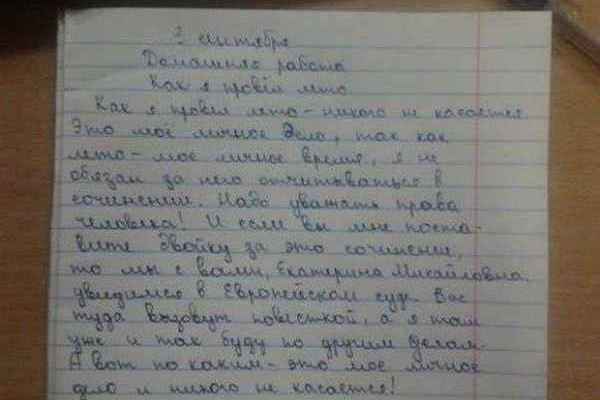 3 сентября
Домашняя работа
Как я провёл лето
Как я провёл лето - никого не касается.
Это моё личное дело, так как
лето - моё личное время, я не
обязан за него отчитываться в
сочинении. Надо уважать права
человека! И если вы мне поста-
вите двойку за это сочинение,
то мы с вами, Екатерина Михайловна,
увидимся в Европейском суде. Вас
туда вызовут повесткой, а я там
уже и так буду по другим делам.
А вот по каким - это моё личное
дело и никого не касается!